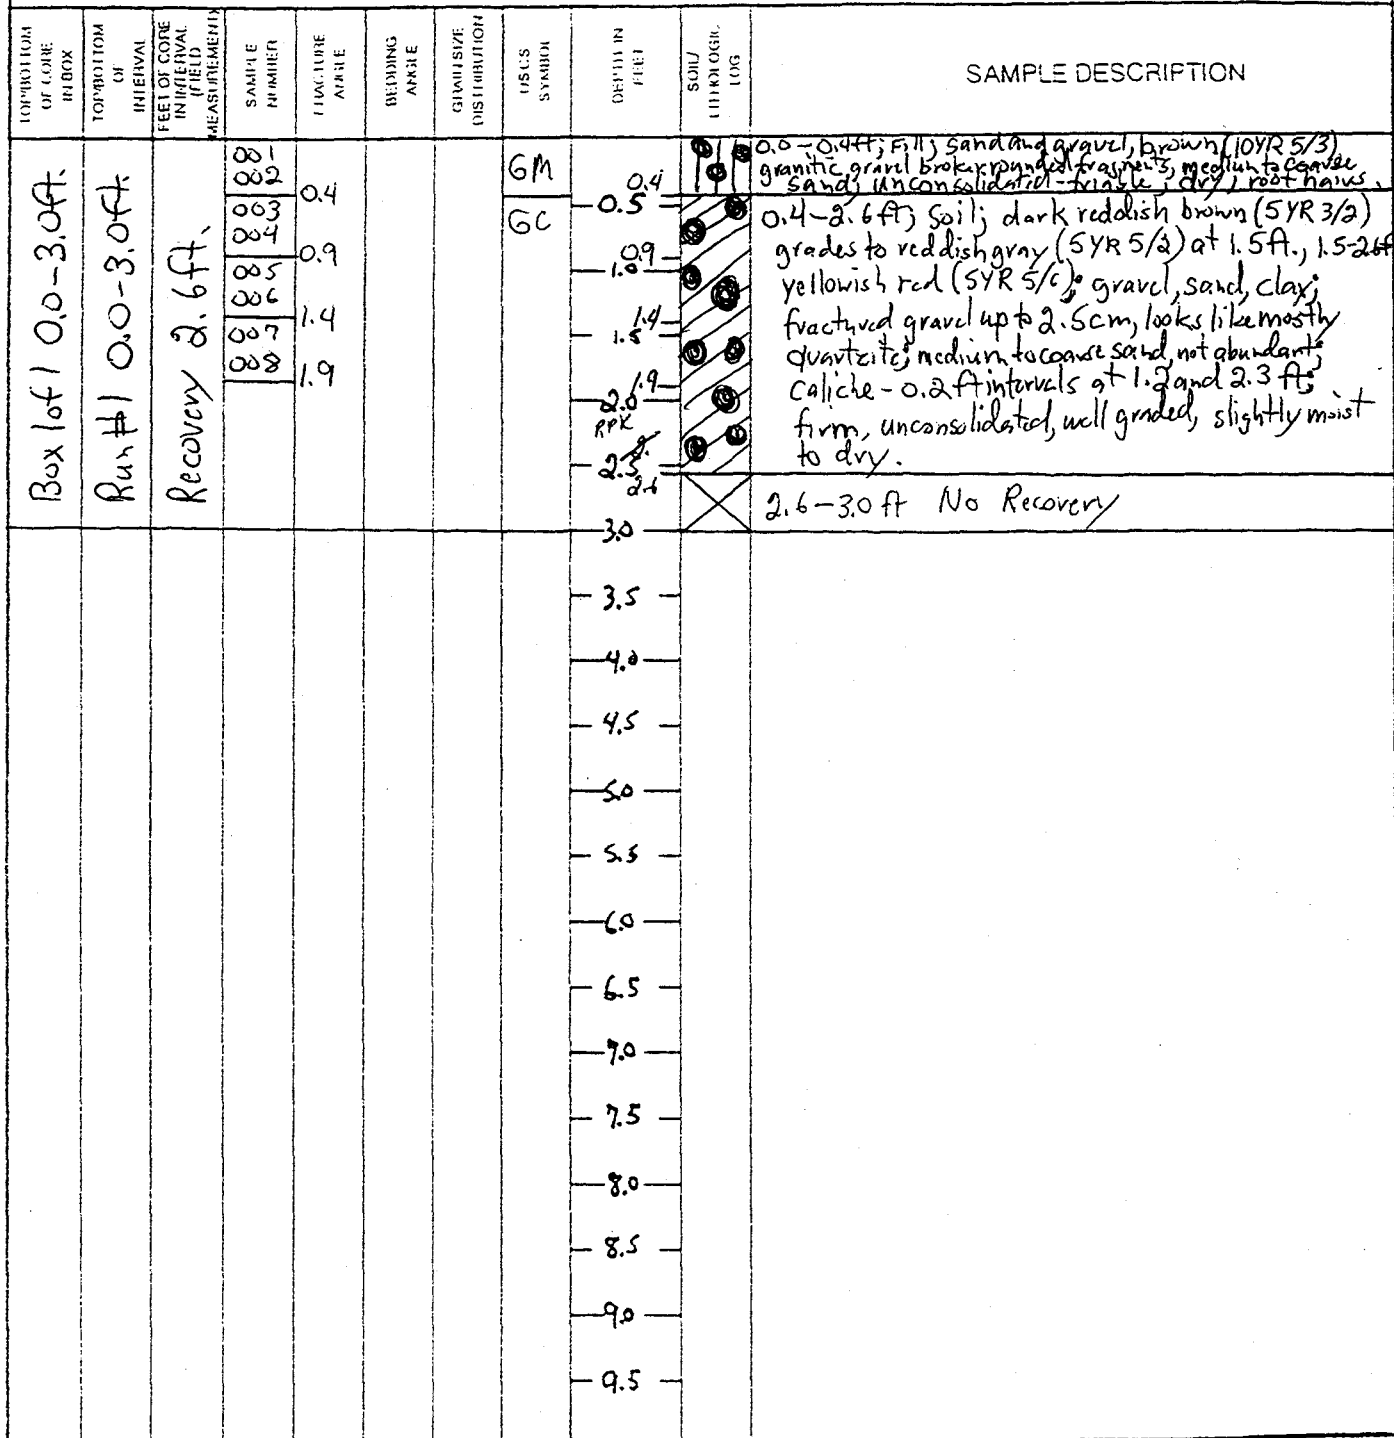 TOP/BOTTOM
OF CORE
IN BOX
TOP/BOTTOM
OF
INTERVAL
FEET OF CORE
IN INTERVAL
(FIELD
MEASUREMENT)
SAMPLE
NUMBER
FRACTURE
ANGLE
BEDDING
ANGLE
GRAIN SIZE
DISTRIBUTION
USCS
SYMBOL
DEPTH IN
FEET
SOIL/
LITHOLOGIC
LOG
SAMPLE DESCRIPTION
Box 1 of 1 0.0-3.0ft.
Run #1 0.0-3.0ft.
Recovery 2.6ft.
001
002
0.4
003
004
0.9
005
006
1.4
007
008
1.9
GM
GC
0.4
0.5
0.9
1.0
1.4
1.5
1.9
2.0
RPK
2.5
2.6
3.0
3.5
4.0
4.5
5.0
5.5
6.0
6.5
7.0
7.5
8.0
8.5
9.0
9.5
0.0-0.4ft; Fill; sand and gravel, brown (10YR 5/3)
granitic gravel broken rounded fragments, medium to coarse
sand; unconsolidated-friable; dry; root hairs.
0.4-2.6ft; Soil; dark reddish brown (5YR 3/2)
grades to reddish gray (5YR 5/2) at 1.5ft., 1.5-2.6ft
yellowish red (5YR 5/6); gravel, sand, clay;
fractured gravel up to 2.5cm, looks like mostly
quartzite; medium to coarse sand, not abundant;
Caliche-0.2ft intervals at 1.2 and 2.3 ft;
firm, unconsolidated, well graded, slightly moist
to dry.
2.6-3.0 ft No Recovery